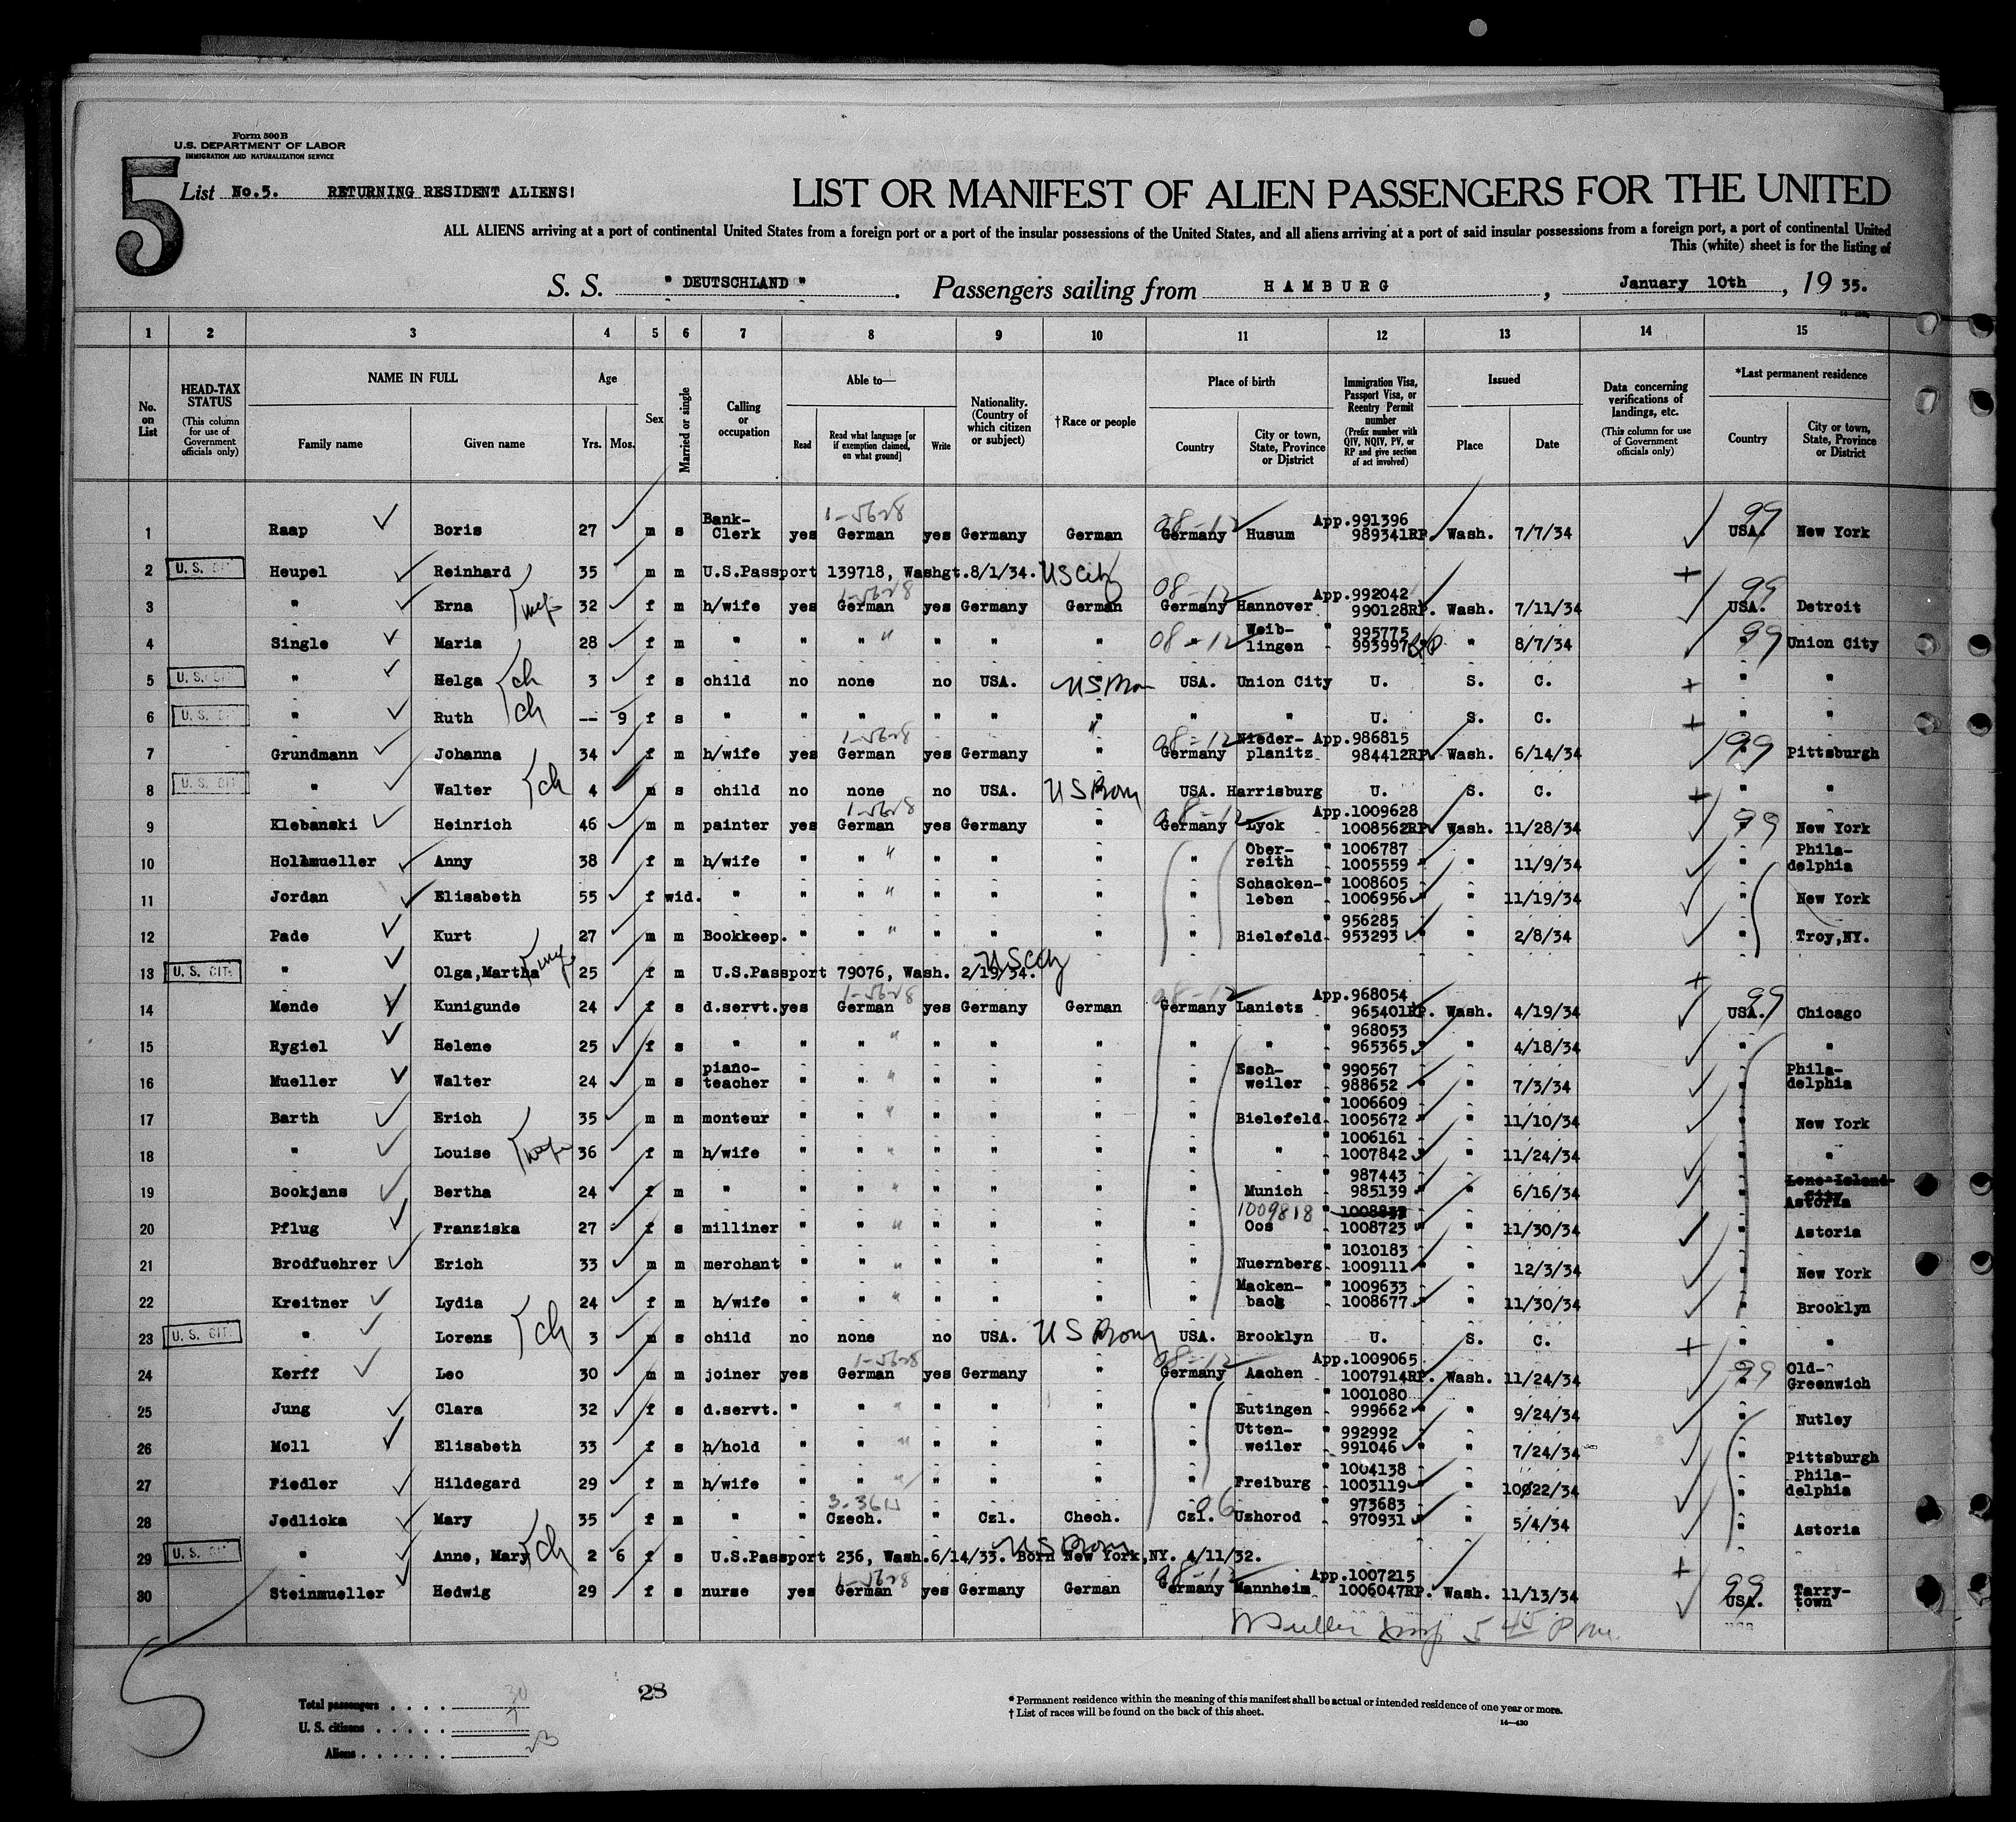 Form 500 B
U.S. DEPARTMENT OF LABOR
IMMIGRATION AND NATURALIZATION SERVICE
5
List No.5. RETURNING RESIDENT ALIENS!
LIST OR MANIFEST OF ALIEN PASSENGERS FOR THE UNITED
ALL ALIENS arriving at a port of continental United States from a foreign port or a port of the insular possessions of the United States, and all aliens arriving at a port of said insular possessions from a foreign port, a port of continental United
This (white) sheet is for the listing of
S. S. " DEUTSCHLAND " . Passengers sailing from HAMBURG , January 10th , 19 35.
1 2 3 4 5 6 7 8 9 10 11 12 13 14 15
No. on List
HEAD-TAX STATUS (This column for use of Government officials only)
NAME IN FULL Family name Given name
Age Yrs. Mos.
Sex
Married or single
Calling or occupation
Able to— Read Read what language [or if exemption claimed, on what ground] Write
Nationality. (Country of which citizen or subject)
†Race or people
Place of birth Country City or town, State, Province or District
Immigration Visa, Passport Visa, or Reentry Permit number (Prefix number with QIV, NQIV, PV, or RP and give section of act involved)
Issued Place Date
Data concerning verifications of landings, etc. (This column for use of Government officials only)
*Last permanent residence Country City or town, State, Province or District
1 Raap Boris 27 m s Bank-Clerk yes 1-5628 German yes Germany German 08-12 Germany Husum App.991396 989341RP. Wash. 7/7/34 99 USA. New York
2 U. S. CIT Heupel Reinhard 35 m m U.S.Passport 139718, Washgt.8/1/34. US City
3 " Erna wife 32 f m h/wife yes 1-5628 German yes Germany German 08-12 Germany Hannover App.992042 990128RP. Wash. 7/11/34 99 USA. Detroit
4 Single Maria 28 f m " " " " " " 08-12 " Weib-lingen " 995775 993997 RP " 8/7/34 99 " Union City
5 U. S. CIT " Helga ch 3 f s child no none no USA. " US Born USA. Union City U. S. C. " "
6 U. S. CIT " Ruth ch -- 9 f s " " " " " " " " U. S. C. " "
7 Grundmann Johanna 34 f m h/wife yes 1-5628 German yes Germany " 08-12 Germany Nieder-planitz App.986815 984412RP. Wash. 6/14/34 99 " Pittsburgh
8 U. S. CIT " Walter ch 4 m s child no none no USA. US Born USA. Harrisburg U. S. C. " "
9 Klebanski Heinrich 46 m m painter yes 1-5628 German yes Germany " 08-12 Germany Lyck App.1009628 1008562RP. Wash. 11/28/34 99 " New York
10 Hollmueller Anny 38 f m h/wife " " " " " " Ober-reith " 1006787 1005559 " " 11/9/34 " Phila-delphia
11 Jordan Elisabeth 55 f wid. " " " " " " " Schacken-leben " 1008605 1006956 " " 11/19/34 " New York
12 Pade Kurt 27 m m Bookkeep. " " " " " " Bielefeld " 956285 953293 " " 2/8/34 " Troy,NY.
13 U. S. CIT. " Olga,Martha wife 25 f m U.S.Passport 79076, Wash. 2/19/34. US City
14 Mende Kunigunde 24 f s d.servt. yes 1-5628 German yes Germany German 08-12 Germany Laniets App.968054 965401RP. Wash. 4/19/34 99 USA. Chicago
15 Rygiel Helene 25 f s " " " " " " " " " 968053 965365 " " 4/18/34 " "
16 Mueller Walter 24 m s piano-teacher " " " " " " Esch-weiler " 990567 988652 " " 7/3/34 " Phila-delphia
17 Barth Erich 35 m m monteur " " " " " " Bielefeld " 1006609 1005672 " " 11/10/34 " New York
18 " Louise wife 36 f m h/wife " " " " " " " " 1006161 1007842 " " 11/24/34 " "
19 Bookjans Bertha 24 f m " " " " " " " Munich " 987443 985139 " " 6/16/34 " Long Island City Astoria
20 Pflug Franziska 27 f s milliner " " " " " " 1009818 Oos " 1008723 " " 11/30/34 " Astoria
21 Brodfuehrer Erich 33 m m merchant " " " " " " Nuernberg " 1010183 1009111 " " 12/3/34 " New York
22 Kreitner Lydia 24 f m h/wife " " " " " " Macken-back " 1009633 1008677 " " 11/30/34 " Brooklyn
23 U. S. CIT. " Lorenz ch 3 m s child no none no USA. US Born USA. Brooklyn U. S. C. " "
24 Kerff Leo 30 m m joiner yes 1-5628 German yes Germany " 08-12 Germany Aachen App.1009065 1007914RP. Wash. 11/24/34 99 " Old-Greenwich
25 Jung Clara 32 f s d.servt. " " " " " " Eutingen " 1001080 999662 " " 9/24/34 " Nutley
26 Moll Elisabeth 33 f s h/hold " " " " " " Utten-weiler " 992992 991046 " " 7/24/34 " Pittsburgh
27 Fiedler Hildegard 29 f m h/wife " " " " " " Freiburg " 1004138 1003119 " " 10/22/34 " Phila-delphia
28 Jedlicka Mary 35 f m " " Czech. " Czl. Chech. Czl. Uzhorod " 973683 970931 " " 5/4/34 " Astoria
29 U. S. CIT " Anne, Mary ch 2 6 f s U.S.Passport 236, Wash.6/14/33. Born New York,NY. 4/11/32. US Born
30 Steinmueller Hedwig 29 f s nurse yes 1-5628 German yes Germany German 08-12 Germany Mannheim App.1007215 1006047RP. Wash. 11/13/34 99 USA. Tarry-town
5 45 P m.
Total passengers . . . . 30
U. S. citizens . . . . . 7
Aliens . . . . . . 23
28
* Permanent residence within the meaning of this manifest shall be actual or intended residence of one year or more.
† List of races will be found on the back of this sheet.
14—430